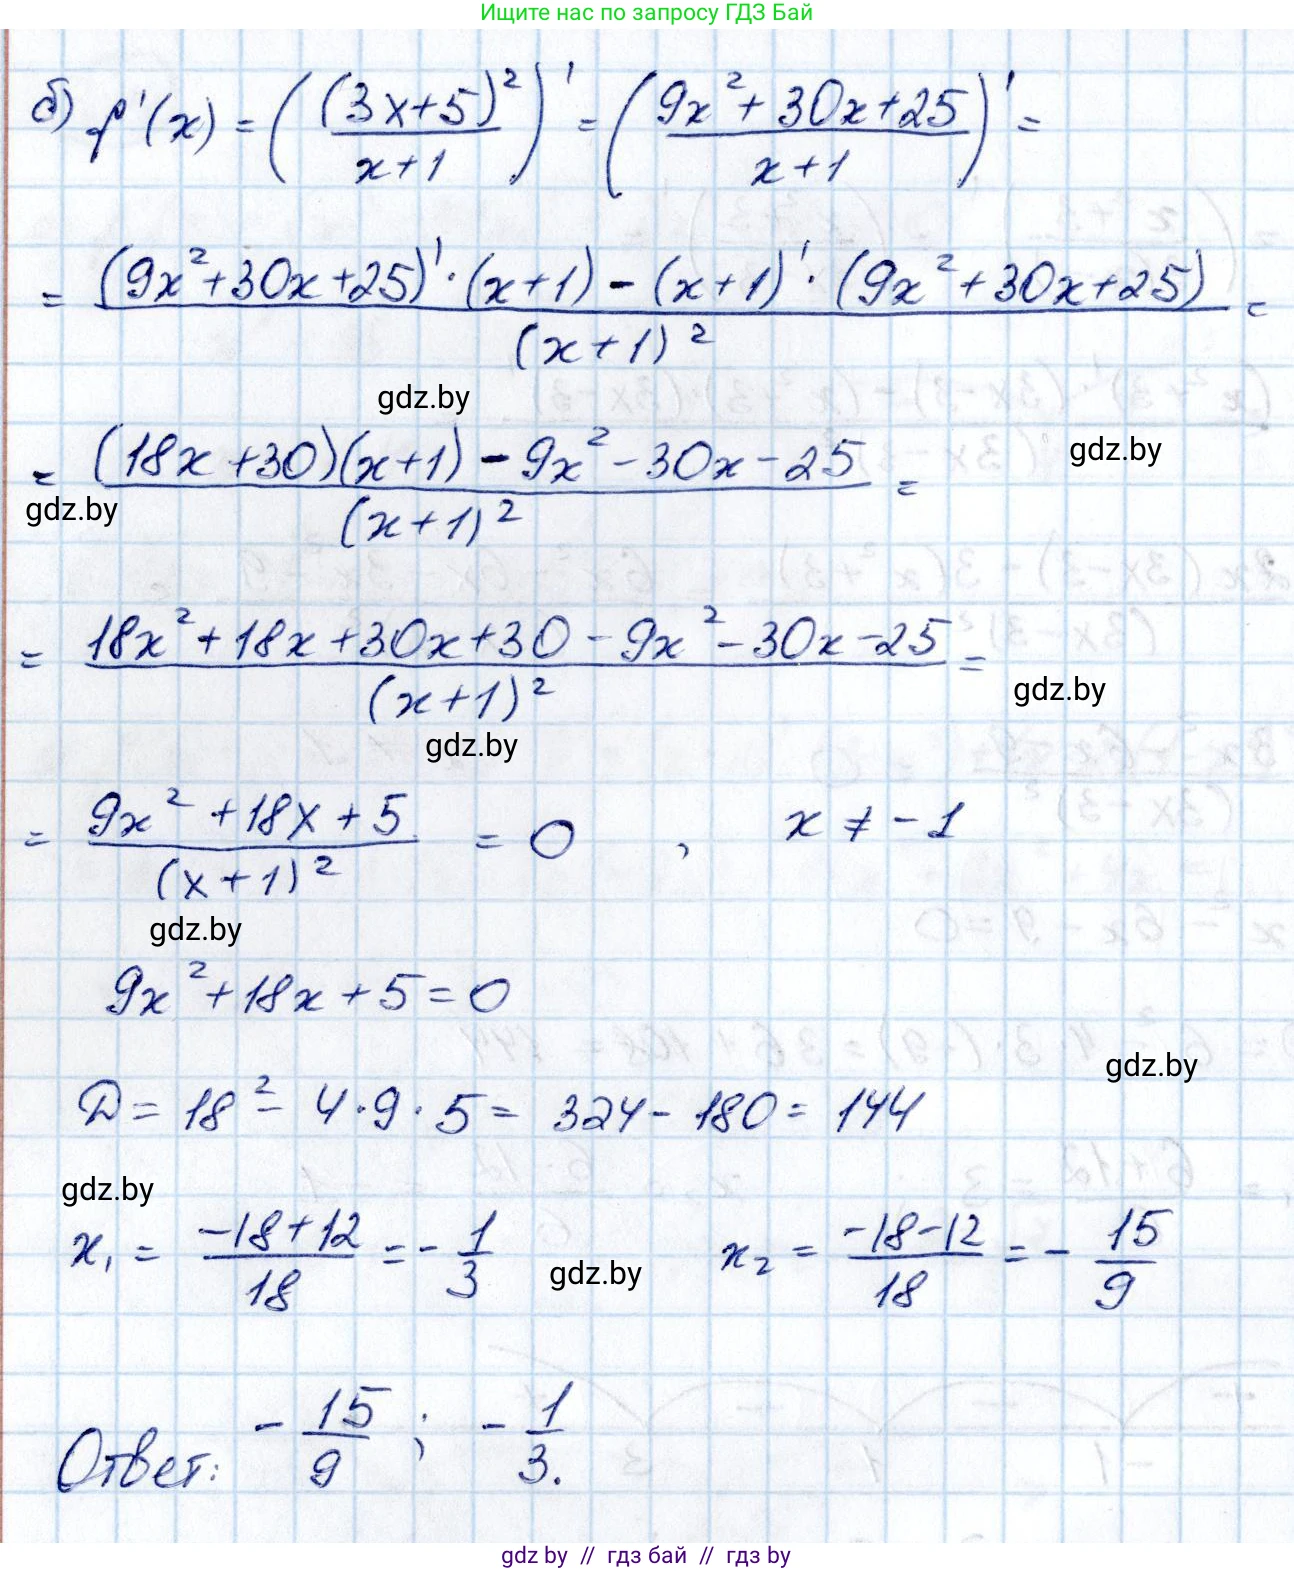 Ищите нас по запросу ГДЗ Бай
б) f'(x) = ((3x+5)²/(x+1))' = ((9x²+30x+25)/(x+1))' =
= ((9x²+30x+25)'·(x+1) - (x+1)'·(9x²+30x+25))/(x+1)² =
gdz.by
= ((18x+30)(x+1) - 9x² - 30x - 25)/(x+1)² =
gdz.by
gdz.by
= (18x²+18x+30x+30-9x²-30x-25)/(x+1)² =
gdz.by
gdz.by
= (9x²+18x+5)/(x+1)² = 0 , x ≠ -1
gdz.by
9x²+18x+5=0
gdz.by
D = 18² - 4·9·5 = 324 - 180 = 144
gdz.by
x₁ = (-18+12)/18 = -1/3 x₂ = (-18-12)/18 = -15/9
gdz.by
Ответ: -15/9 ; -1/3.
gdz.by // гдз бай // гдз by